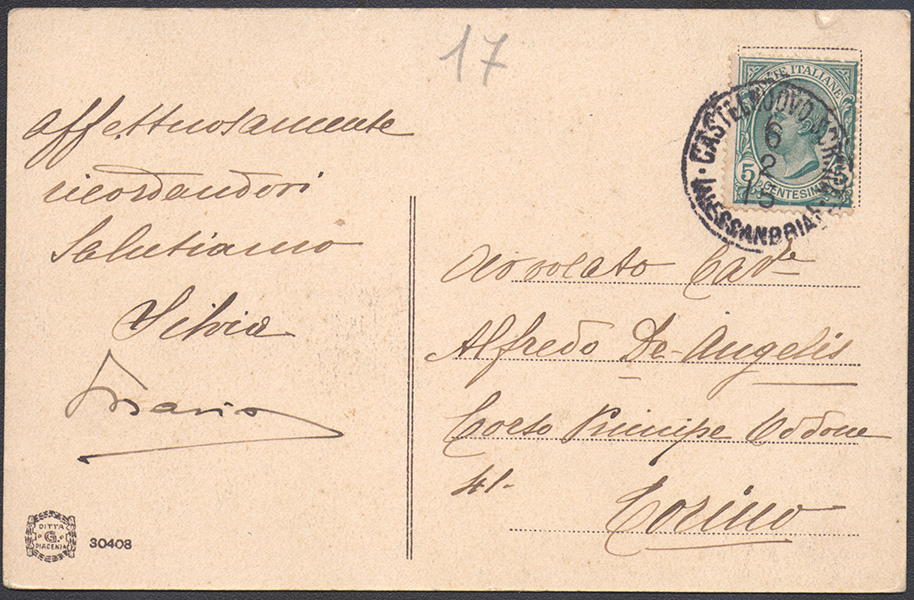 17
affettuosamente
ricordandovi
Salutiamo
Silvia
Mario
DITTA
G.
PIACENZA
30408
POSTE ITALIANE
5 CENTESIMI
CASTELNUOVO
6
2
15
ALESSANDRIA
Avvocato Cav.
Alfredo De-Angelis
Corso Principe Oddone
41.
Torino